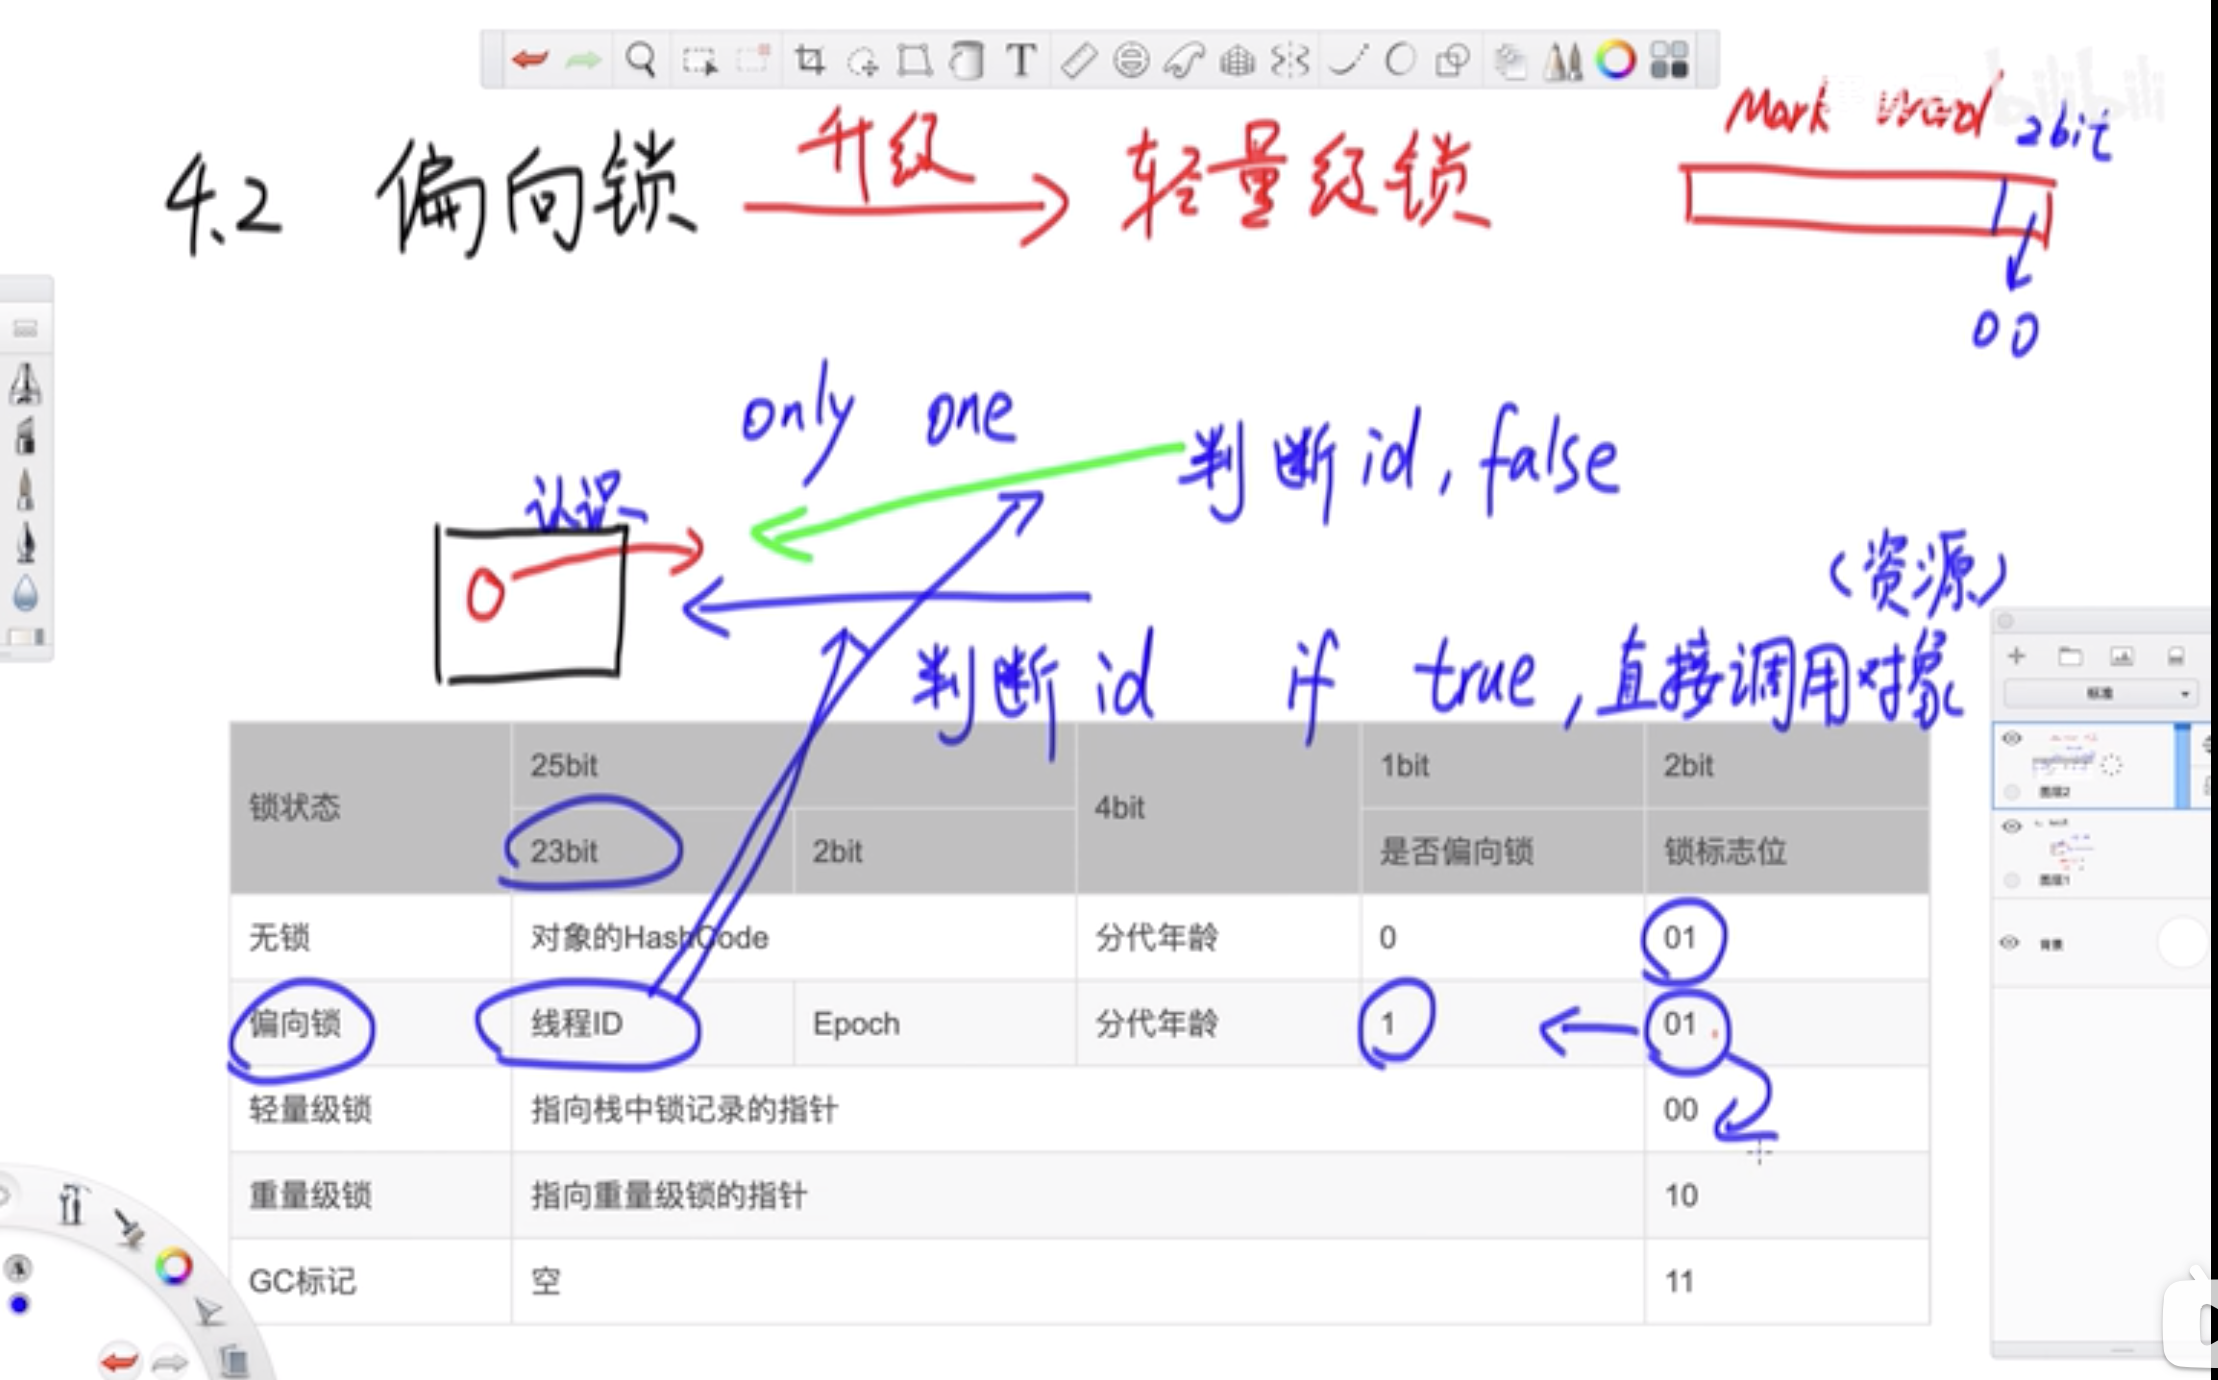 bilibili
Mark word 2bit
4.2 偏向锁 升级 轻量级锁
00
only one
判断id, false
认识
(资源)
判断id if true, 直接调用对象
标准
图层2
图层1
背景
锁状态 25bit 4bit 1bit 2bit
23bit 2bit 是否偏向锁 锁标志位
无锁 对象的HashCode 分代年龄 0 01
偏向锁 线程ID Epoch 分代年龄 1 01
轻量级锁 指向栈中锁记录的指针 00
重量级锁 指向重量级锁的指针 10
GC标记 空 11